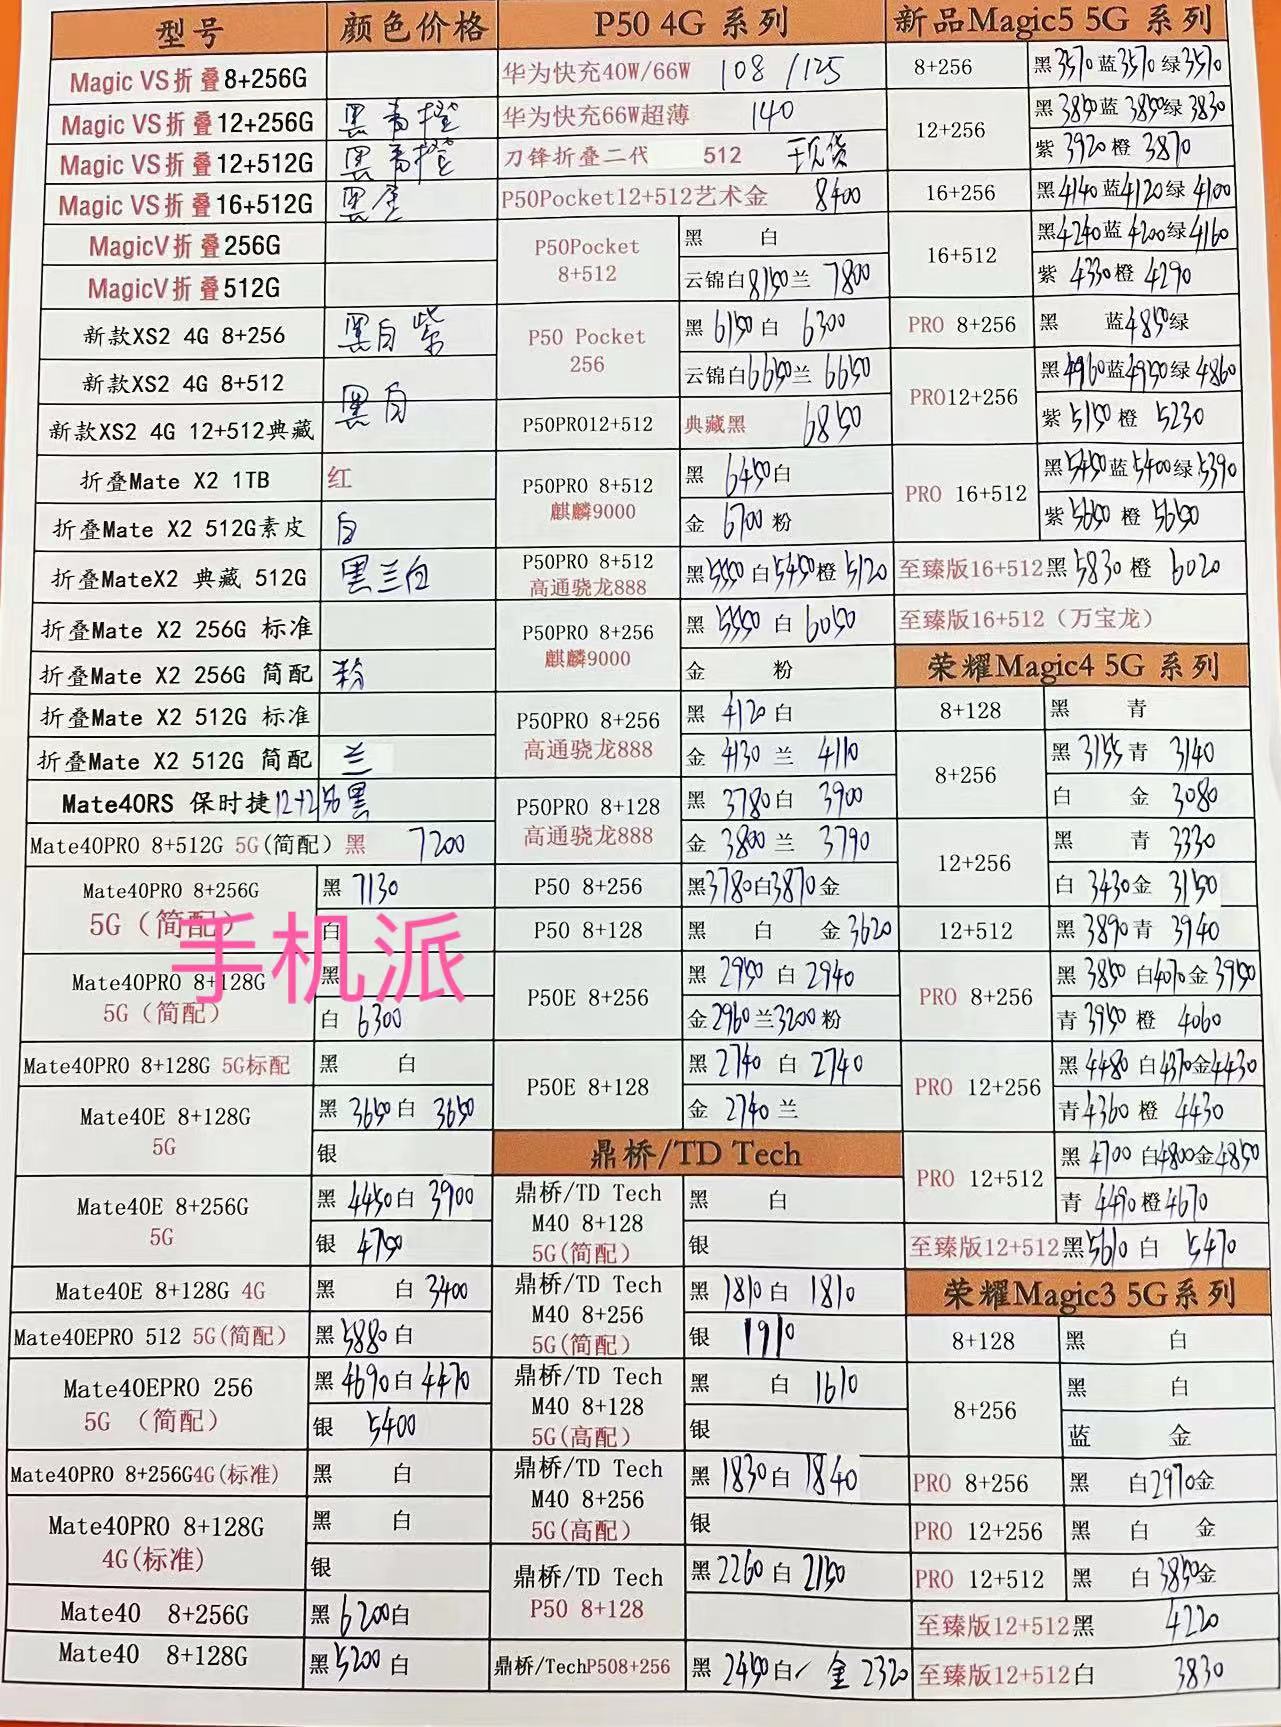 型号 颜色价格
Magic VS折叠8+256G
Magic VS折叠12+256G 黑青橙
Magic VS折叠12+512G 黑青橙
Magic VS折叠16+512G 黑金
MagicV折叠256G
MagicV折叠512G
新款XS2 4G 8+256 黑白紫
新款XS2 4G 8+512
新款XS2 4G 12+512典藏 黑白
折叠Mate X2 1TB 红
折叠Mate X2 512G素皮 白
折叠MateX2 典藏 512G 黑兰白
折叠Mate X2 256G 标准
折叠Mate X2 256G 简配 粉
折叠Mate X2 512G 标准
折叠Mate X2 512G 简配 兰
Mate40RS 保时捷12+256黑
Mate40PRO 8+512G 5G(简配) 黑 7200
Mate40PRO 8+256G 黑 7130
5G(简配) 白
手机派
Mate40PRO 8+128G 黑
5G(简配) 白 6300
Mate40PRO 8+128G 5G标配 黑 白
Mate40E 8+128G 黑 3650 白 3650
5G 银
Mate40E 8+256G 黑 4450 白 3900
5G 银 4750
Mate40E 8+128G 4G 黑 白 3400
Mate40EPRO 512 5G(简配) 黑 5880 白
Mate40EPRO 256 黑 4690 白 4470
5G (简配) 银 5400
Mate40PRO 8+256G4G(标准) 黑 白
Mate40PRO 8+128G 黑 白
4G(标准) 银
Mate40 8+256G 黑 6200 白
Mate40 8+128G 黑 5200 白
P50 4G 系列
华为快充40W/66W 108 /125
华为快充66W超薄 140
刀锋折叠二代 512 现货
P50Pocket12+512艺术金 8400
P50Pocket 黑 白
8+512 云锦白8150 兰 7800
P50 Pocket 黑 6150 白 6300
256 云锦白6650 兰 6650
P50PRO12+512 典藏黑 6850
P50PRO 8+512 黑 6450 白
麒麟9000 金 6700 粉
P50PRO 8+512
高通骁龙888 黑5550 白5450 橙 5120
P50PRO 8+256 黑 5550 白 6050
麒麟9000 金 粉
P50PRO 8+256 黑 4120 白
高通骁龙888 金 4130 兰 4110
P50PRO 8+128 黑 3780 白 3900
高通骁龙888 金 3800 兰 3790
P50 8+256 黑3780 白3870 金
P50 8+128 黑 白 金 3620
P50E 8+256 黑 2950 白 2940
金 2960 兰3200 粉
P50E 8+128 黑 2740 白 2740
金 2740 兰
鼎桥/TD Tech
鼎桥/TD Tech 黑 白
M40 8+128
5G(简配) 银
鼎桥/TD Tech 黑 1810 白 1810
M40 8+256
5G(简配) 银 1910
鼎桥/TD Tech 黑 白 1610
M40 8+128
5G(高配) 银
鼎桥/TD Tech 黑 1830 白 1840
M40 8+256
5G(高配) 银
鼎桥/TD Tech 黑 2260 白 2150
P50 8+128
鼎桥/TechP508+256 黑 2450 白/ 金 2320
新品Magic5 5G 系列
8+256 黑3570 蓝3570 绿3570
12+256 黑 3850 蓝 3850 绿 3830
紫 3920 橙 3870
16+256 黑4140 蓝4120 绿 4100
16+512 黑4240 蓝4200 绿4160
紫 4330 橙 4290
PRO 8+256 黑 蓝4850 绿
PRO12+256 黑4960 蓝4950 绿 4860
紫 5150 橙 5230
PRO 16+512 黑5450 蓝5400 绿5390
紫 5650 橙 5650
至臻版16+512黑 5830 橙 6020
至臻版16+512(万宝龙)
荣耀Magic4 5G 系列
8+128 黑 青
8+256 黑 3155 青 3140
白 金 3080
12+256 黑 青 3330
白 3430 金 3150
12+512 黑 3890 青 3940
PRO 8+256 黑 3850 白4070 金 3950
青 3950 橙 4060
PRO 12+256 黑 4480 白4370 金4430
青4360 橙 4430
PRO 12+512 黑 4700 白4800 金4850
青 4490 橙4670
至臻版12+512黑5610 白 5470
荣耀Magic3 5G系列
8+128 黑 白
8+256 黑 白
蓝 金
PRO 8+256 黑 白2970 金
PRO 12+256 黑 白 金
PRO 12+512 黑 白3850 金
至臻版12+512黑 4220
至臻版12+512白 3830